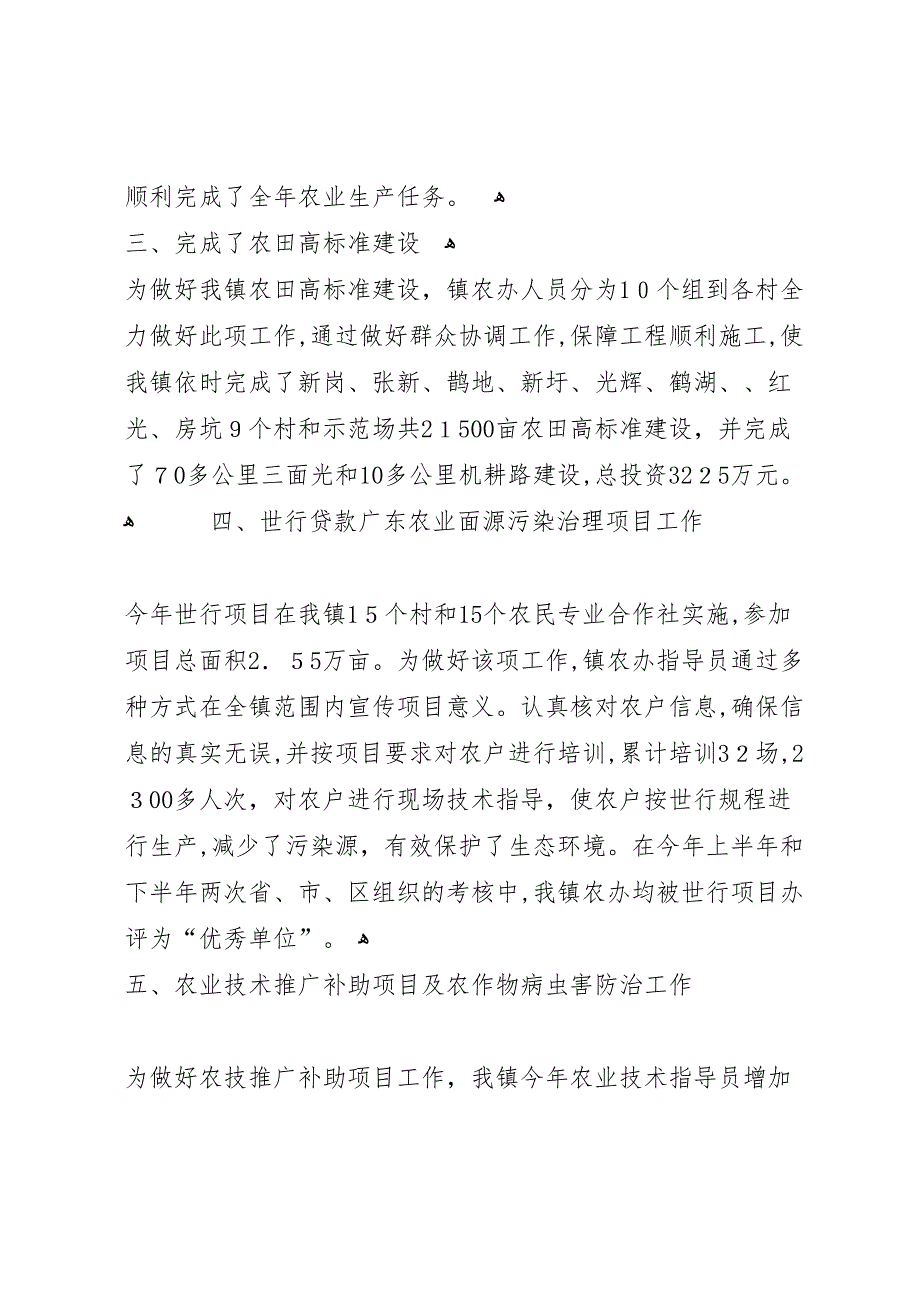 顺利完成了全年农业生产任务。 ﻫ
三、完成了农田高标准建设 ﻫ
为做好我镇农田高标准建设，镇农办人员分为10个组到各村全
力做好此项工作,通过做好群众协调工作,保障工程顺利施工,使
我镇依时完成了新岗、张新、鹊地、新圩、光辉、鹤湖、、红
光、房坑9个村和示范场共21500亩农田高标准建设，并完成
了70多公里三面光和10多公里机耕路建设,总投资3225万元。
ﻫ 四、世行贷款广东农业面源污染治理项目工作
今年世行项目在我镇15个村和15个农民专业合作社实施,参加
项目总面积2．55万亩。为做好该项工作,镇农办指导员通过多
种方式在全镇范围内宣传项目意义。认真核对农户信息,确保信
息的真实无误,并按项目要求对农户进行培训,累计培训32场,2
300多人次，对农户进行现场技术指导，使农户按世行规程进
行生产,减少了污染源，有效保护了生态环境。在今年上半年和
下半年两次省、市、区组织的考核中,我镇农办均被世行项目办
评为“优秀单位”。 ﻫ
五、农业技术推广补助项目及农作物病虫害防治工作
为做好农技推广补助项目工作，我镇今年农业技术指导员增加